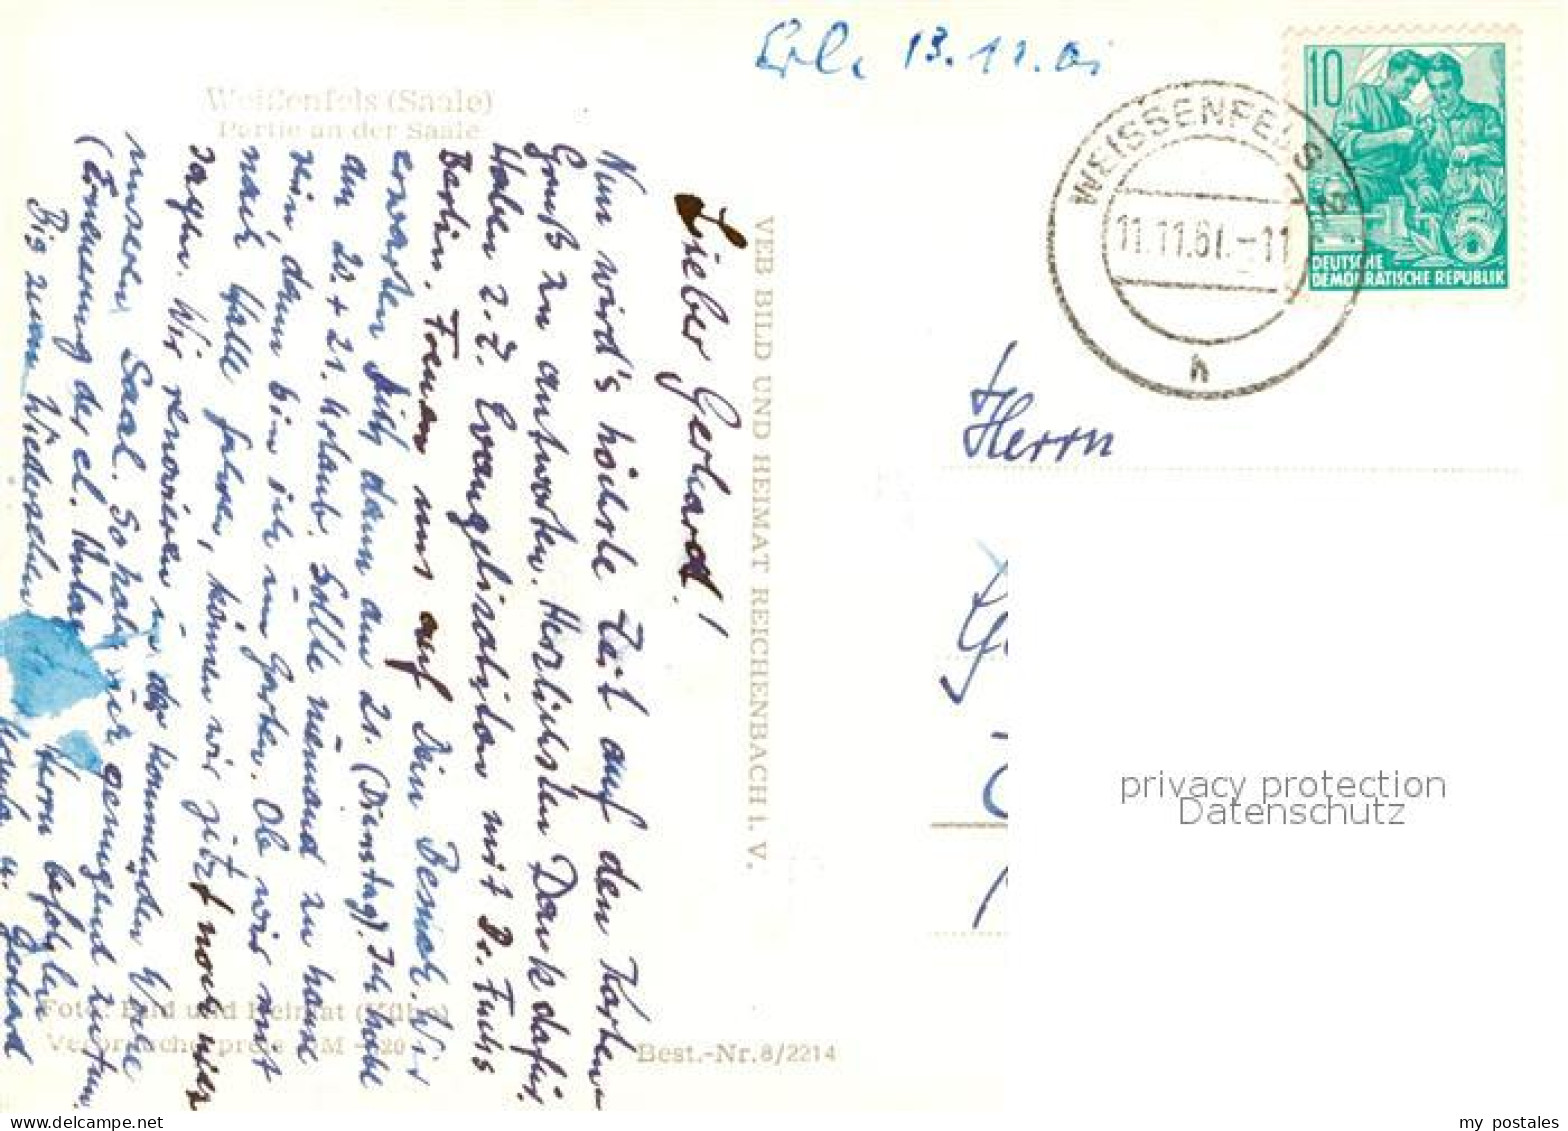 Erl. 13.11.61
Weißenfels (Saale)
Partie an der Saale
Lieber Gerhard!
Nun wird's höchste Zeit auf den Karten-
Gruß zu antworten. Herzlichsten Dank dafür.
Haben z. Z. Evangelisation mit Dr. Fuchs
Berlin. Freuen uns auf Dein Besuch. Wir
erwarten Dich dann am 21. (Dienstag). Ich habe
am 20. + 21. Urlaub. Sollte niemand zu hause
sein dann bin ich im Garten. Ob wir mit
nach Halle fahren, können wir jetzt noch nicht
sagen. Wir renovieren in der kommenden Woche
unseren Saal. So habe ich genügend zu tun.
(Erneuerung der el. Anlage
Bis zum Wiedersehen
Herrn befohlen
u. Gerhard
VEB BILD UND HEIMAT REICHENBACH i. V.
Foto: Bild und Heimat
Verbraucherpreis DM -,20
Best.-Nr. 8/2214
10
DEUTSCHE
DEMOKRATISCHE REPUBLIK
WEISSENFELS
11.11.61.-11
h
Herrn
privacy protection
Datenschutz
my postales